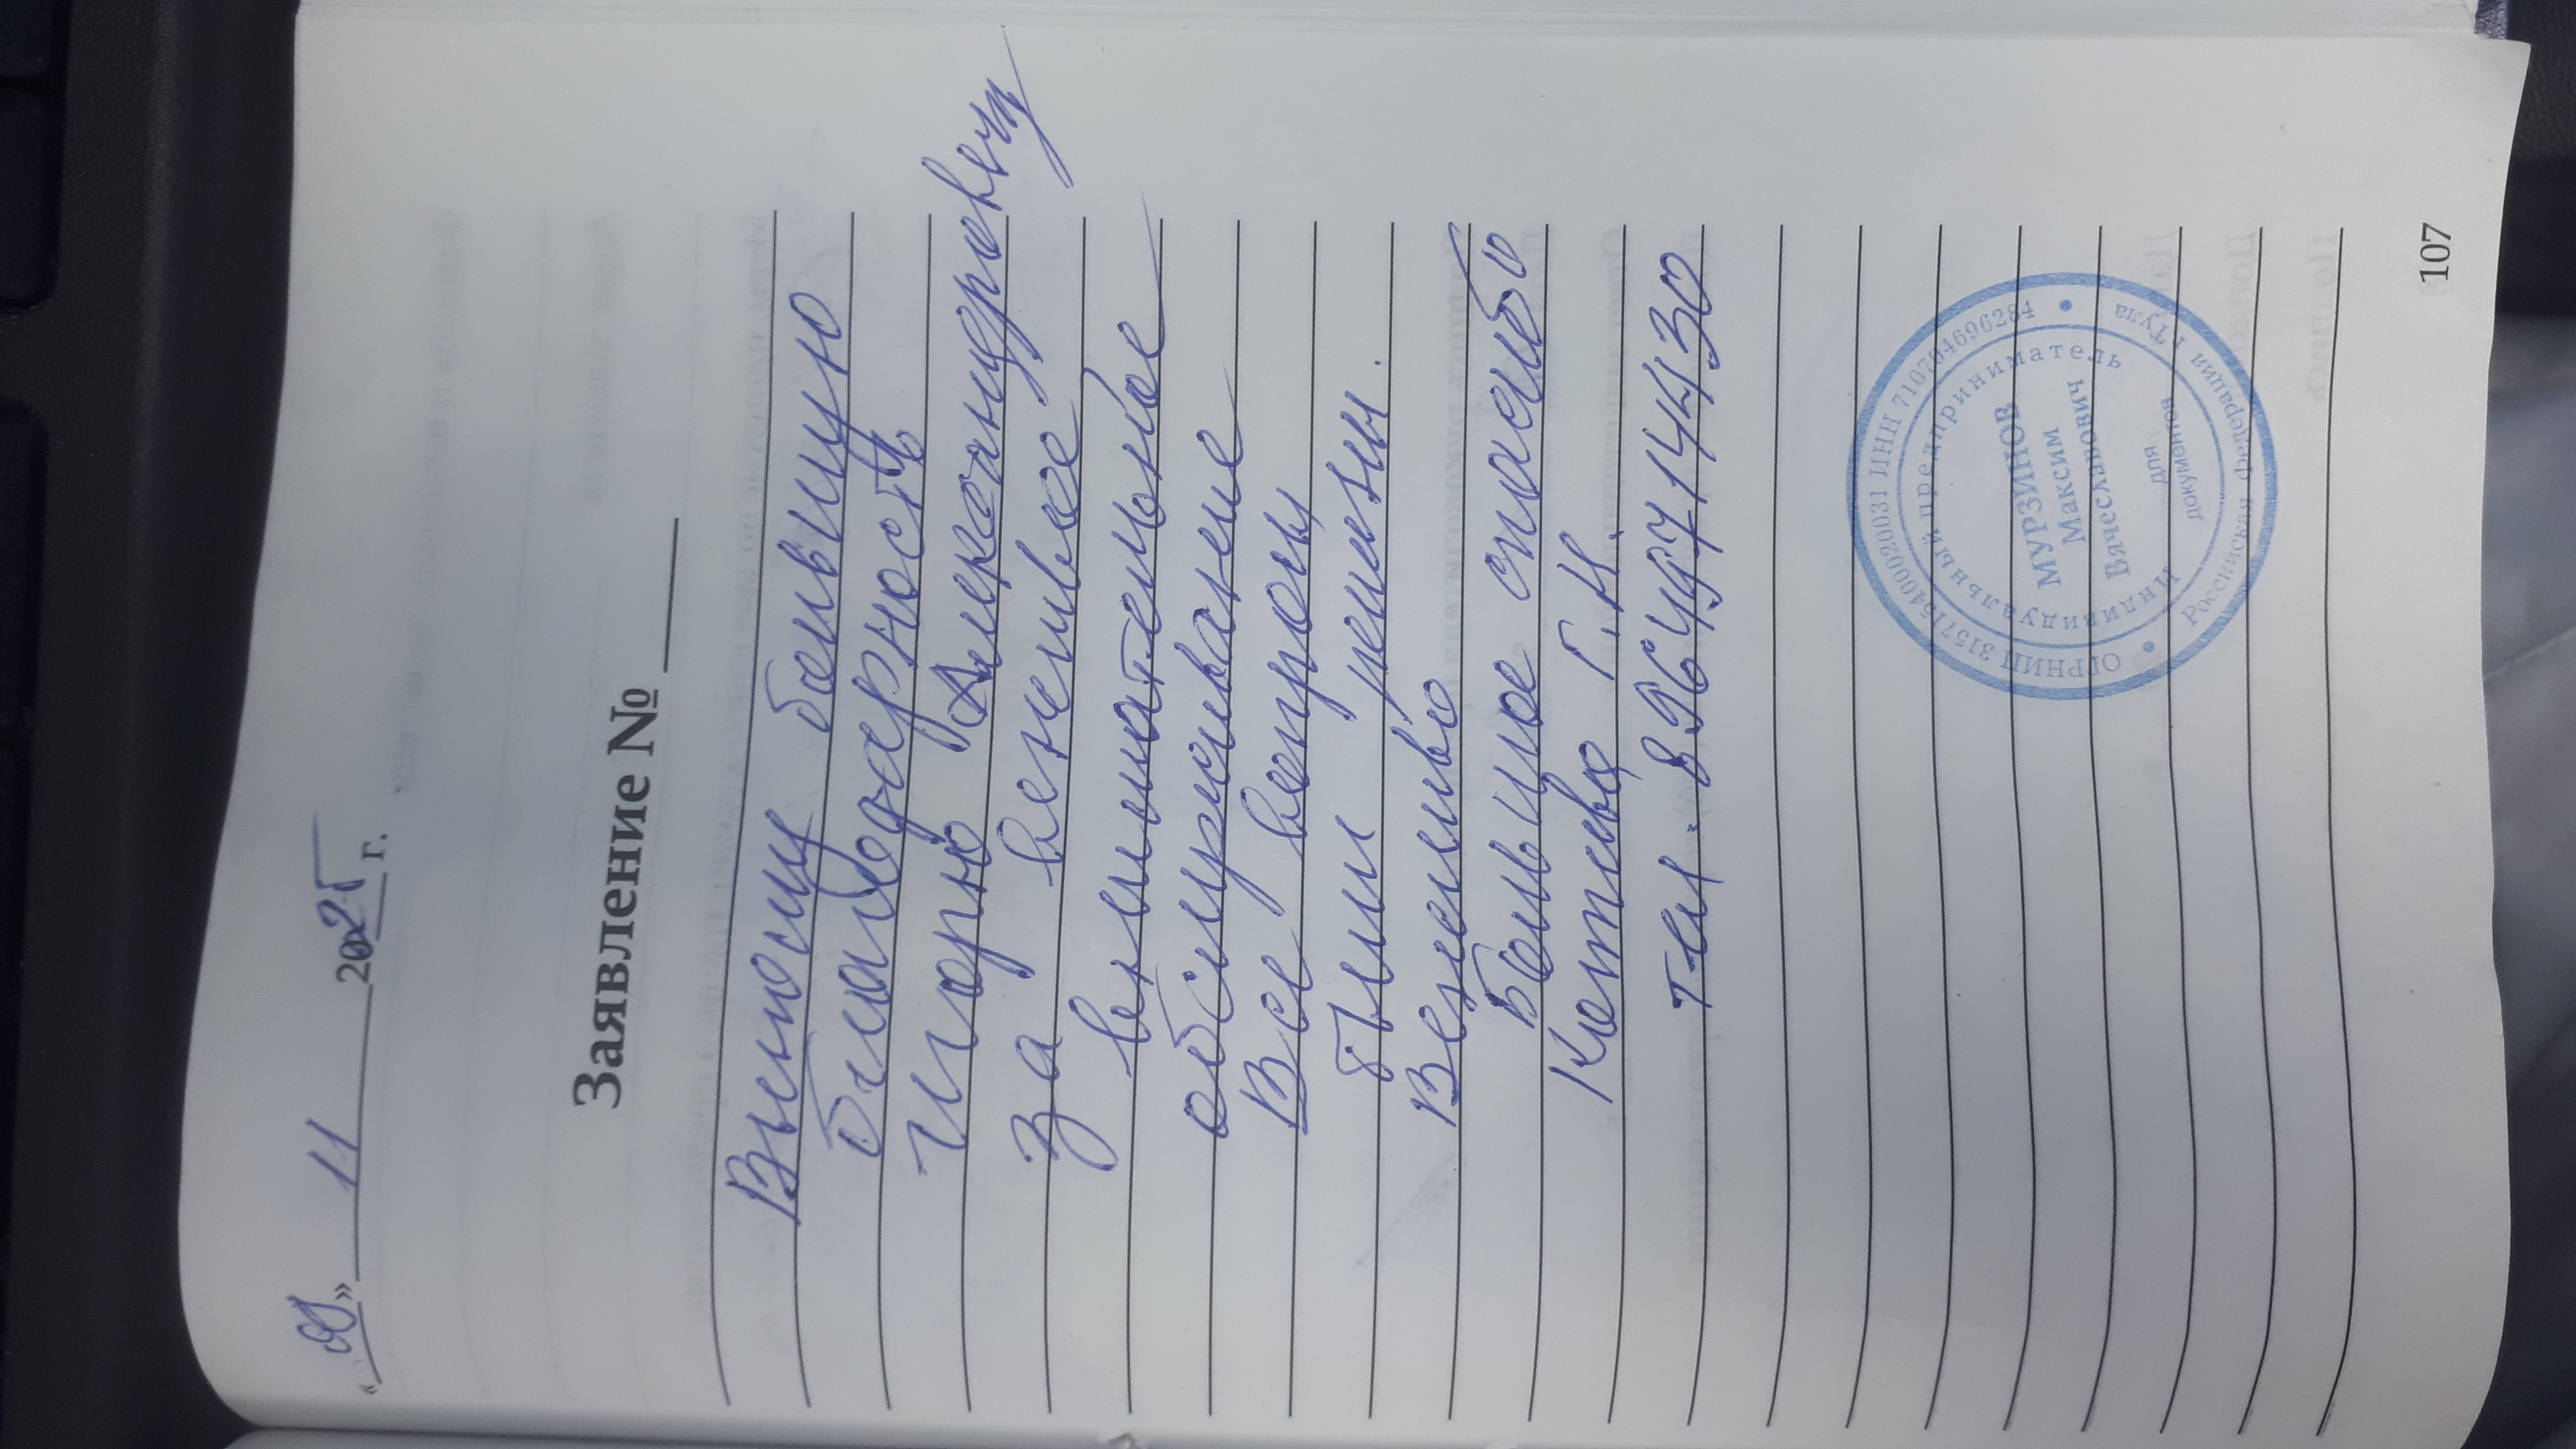 « » 11 2025 г.
Заявление № ____
Выношу большую
благодарность
Игорю Александровичу
За вежливое
внимательное
обслуживание
Все вопросы
были решены.
Вежливо
Большое спасибо
Котова Г.Н.
тел. 89649714430
ОГРНИП 315715400020031 ИНН 710704696284
Российская Федерация г.Тула
Индивидуальный предприниматель
МУРЗИНОВ
Максим
Вячеславович
для
документов
107